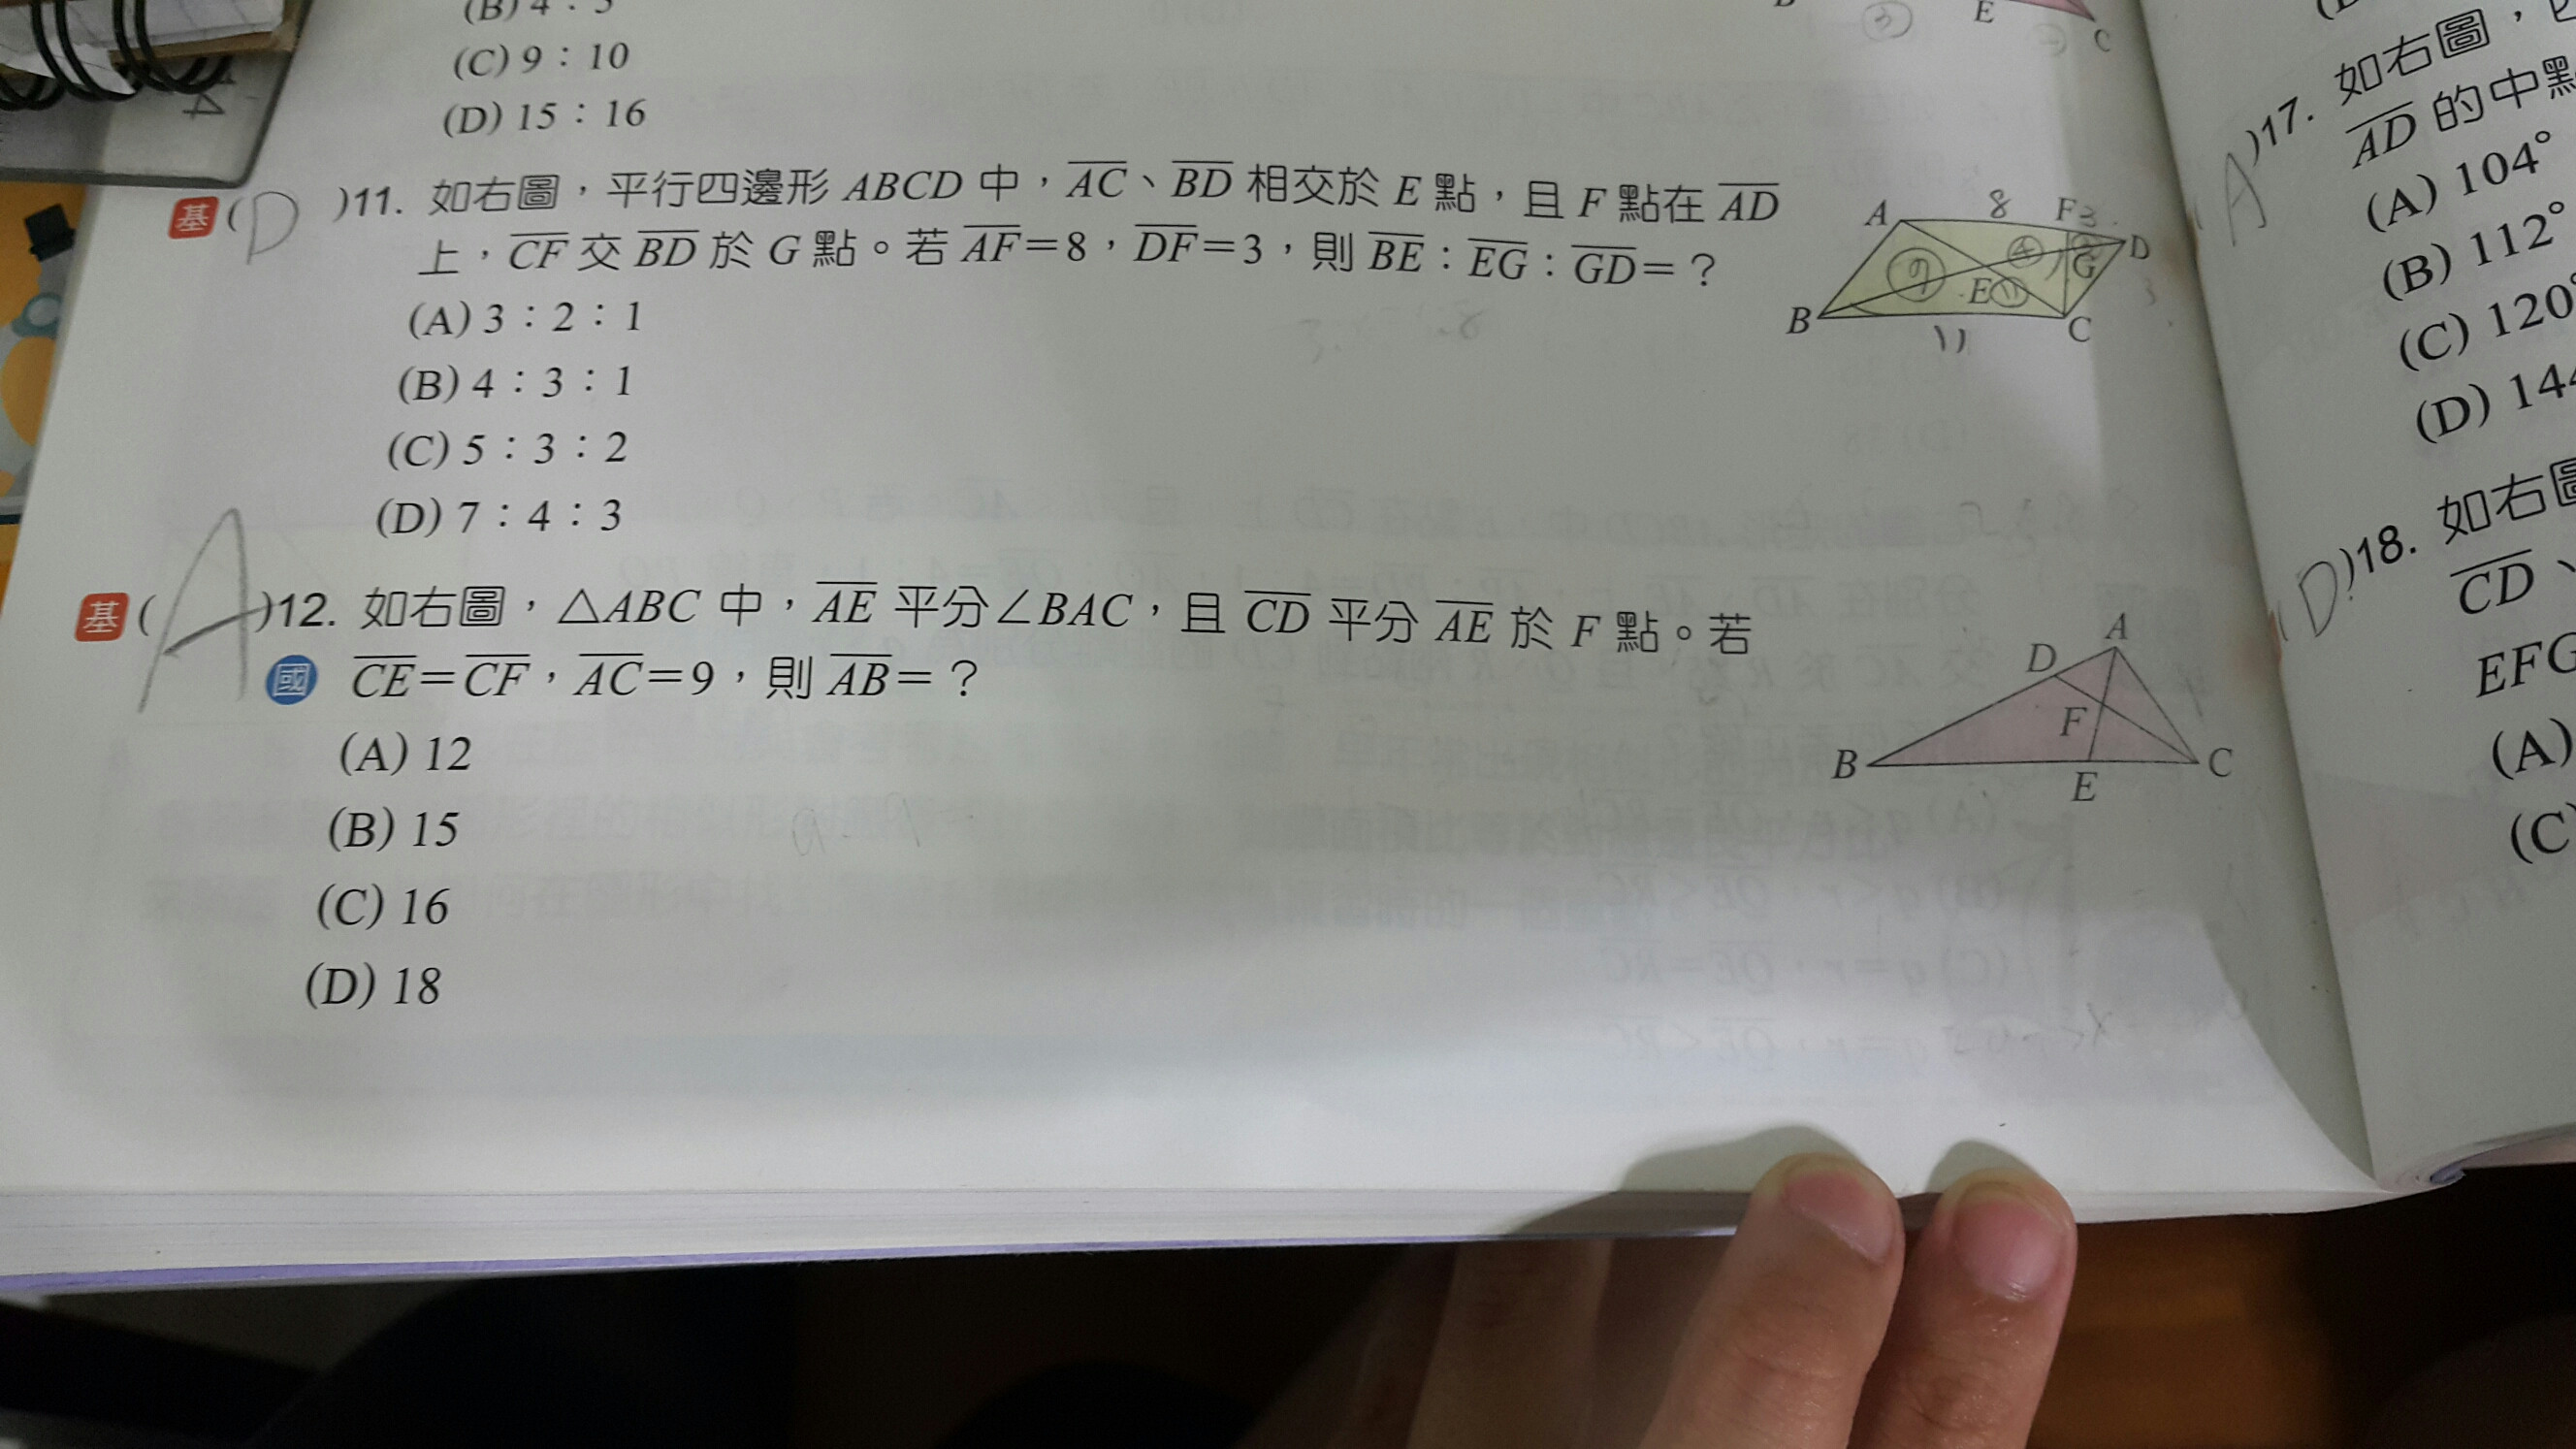 (B) 4：5
(C) 9：10
(D) 15：16
基 ( D )11. 如右圖，平行四邊形 ABCD 中，AC、BD 相交於 E 點，且 F 點在 AD
上，CF 交 BD 於 G 點。若 AF=8，DF=3，則 BE：EG：GD=？
(A) 3：2：1
(B) 4：3：1
(C) 5：3：2
(D) 7：4：3
A 8 F 3 D
9 4 G
E 11
B 11 C
基 ( A )12. 如右圖，△ABC 中，AE 平分∠BAC，且 CD 平分 AE 於 F 點。若
國 CE=CF，AC=9，則 AB=？
(A) 12
(B) 15
(C) 16
(D) 18
A
D
F
B E C
E C
( A )17. 如右圖，
AD 的中點
(A) 104°
(B) 112°
(C) 120°
(D) 144
( D )18. 如右圖
CD、
EFG
(A)
(C)